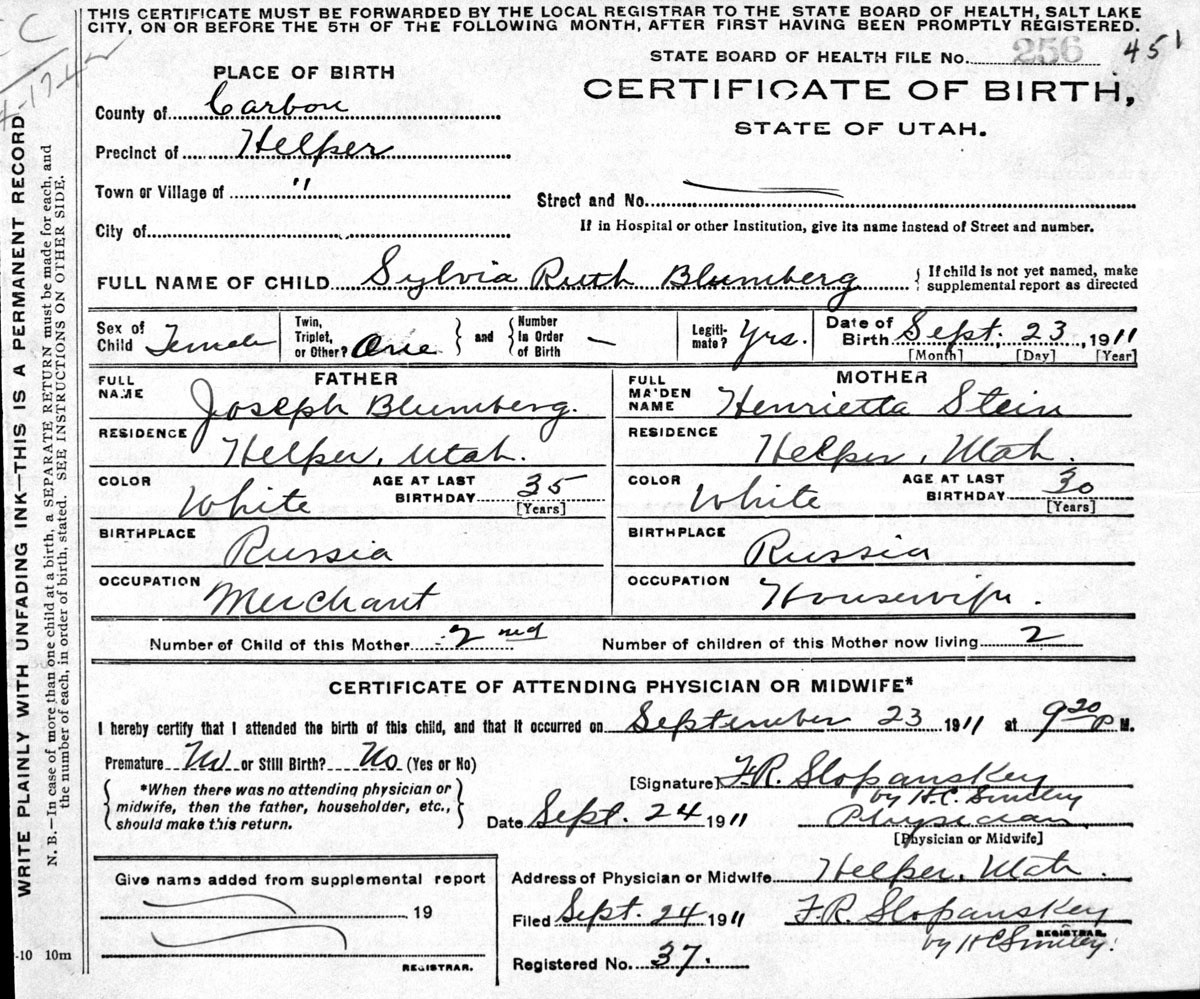 THIS CERTIFICATE MUST BE FORWARDED BY THE LOCAL REGISTRAR TO THE STATE BOARD OF HEALTH, SALT LAKE
CITY, ON OR BEFORE THE 5TH OF THE FOLLOWING MONTH, AFTER FIRST HAVING BEEN PROMPTLY REGISTERED.
STATE BOARD OF HEALTH FILE No. 256 451
PLACE OF BIRTH
CERTIFICATE OF BIRTH,
STATE OF UTAH.
County of Carbon
Precinct of Helper
Town or Village of "
Street and No.
City of
If in Hospital or other Institution, give its name instead of Street and number.
FULL NAME OF CHILD Sylvia Ruth Blumberg { If child is not yet named, make
supplemental report as directed
Sex of Child Female
Twin, Triplet, or Other? One } and { Number in Order of Birth —
Legiti-mate? Yrs.
Date of Birth Sept. 23, 1911
[Month] [Day] [Year]
FATHER
FULL NAME Joseph Blumberg.
RESIDENCE Helper, Utah.
COLOR White AGE AT LAST BIRTHDAY 35
[Years]
BIRTHPLACE Russia
OCCUPATION Merchant
MOTHER
FULL MAIDEN NAME Henrietta Stein
RESIDENCE Helper, Utah.
COLOR White AGE AT LAST BIRTHDAY 30
[Years]
BIRTHPLACE Russia
OCCUPATION Housewife.
Number of Child of this Mother 2nd Number of children of this Mother now living 2
CERTIFICATE OF ATTENDING PHYSICIAN OR MIDWIFE*
I hereby certify that I attended the birth of this child, and that it occurred on September 23 1911 at 9 20 P M.
Premature No or Still Birth? No (Yes or No)
*When there was no attending physician or
midwife, then the father, householder, etc.,
should make this return.
[Signature] F.R. Slopanskey
by H.C. Smiley
Date Sept. 24 1911 Physician
[Physician or Midwife]
Give name added from supplemental report
19
REGISTRAR.
Address of Physician or Midwife Helper, Utah.
Filed Sept. 24 1911 F.R. Slopanskey
REGISTRAR.
by H C Smiley.
Registered No. 37.
WRITE PLAINLY WITH UNFADING INK—THIS IS A PERMANENT RECORD
N. B.—In case of more than one child at a birth, a SEPARATE RETURN must be made for each, and
the number of each, in order of birth, stated. SEE INSTRUCTIONS ON OTHER SIDE.
-10 10m